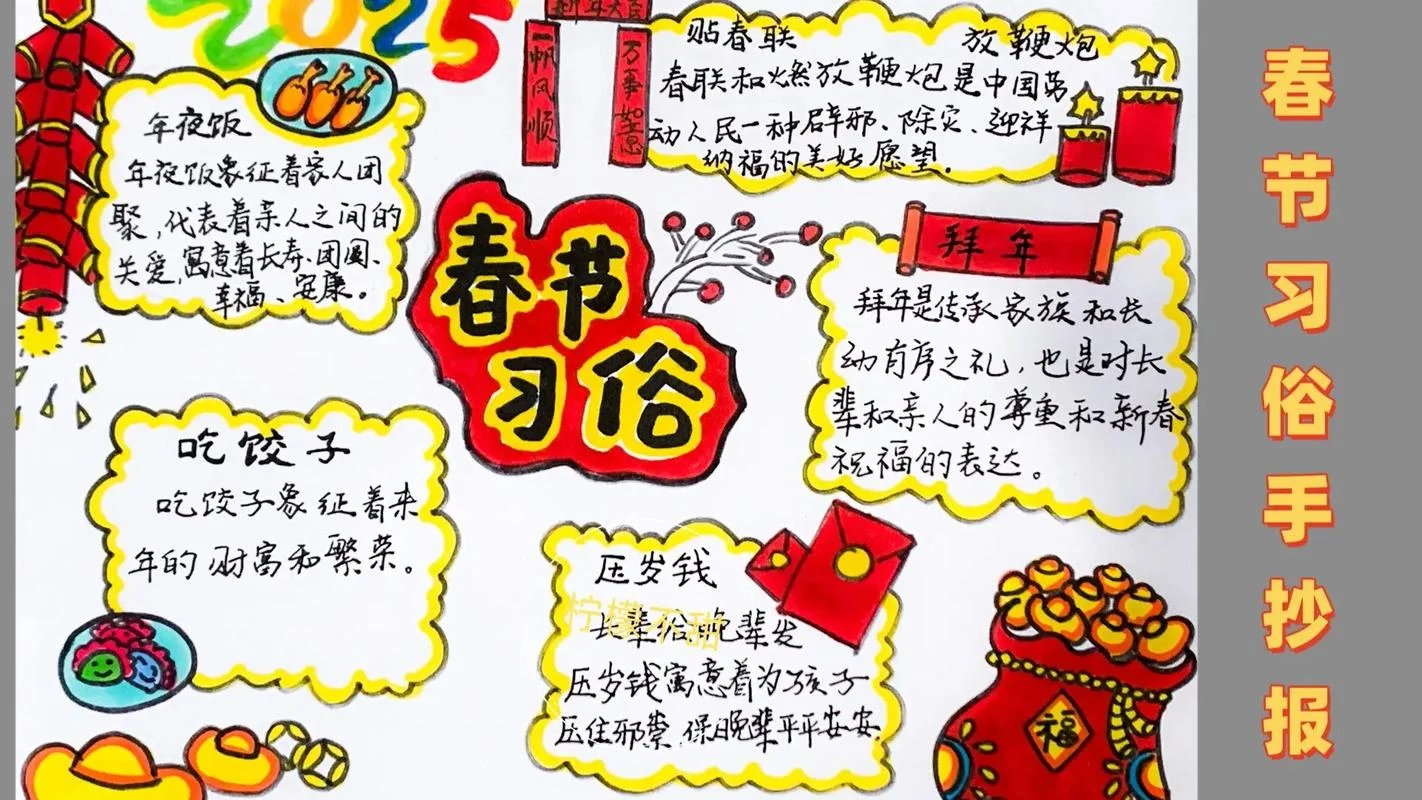 2025
新年大吉
一帆风顺
万事如意
贴春联 放鞭炮
春联和燃放鞭炮是中国劳
动人民一种辟邪、除灾、迎祥
纳福的美好愿望。
年夜饭
年夜饭象征着家人团
聚,代表着亲人之间的
关爱,寓意着长寿、团圆、
幸福、安康。
春节
习俗
拜年
拜年是传承家族和长
幼有序之礼,也是对长
辈和亲人的尊重和新春
祝福的表达。
吃饺子
吃饺子象征着来
年的财富和繁荣。
压岁钱
长辈给晚辈发
压岁钱寓意着为孩子
压住邪祟,保晚辈平平安安
柠檬不甜
福
春节习俗手抄报